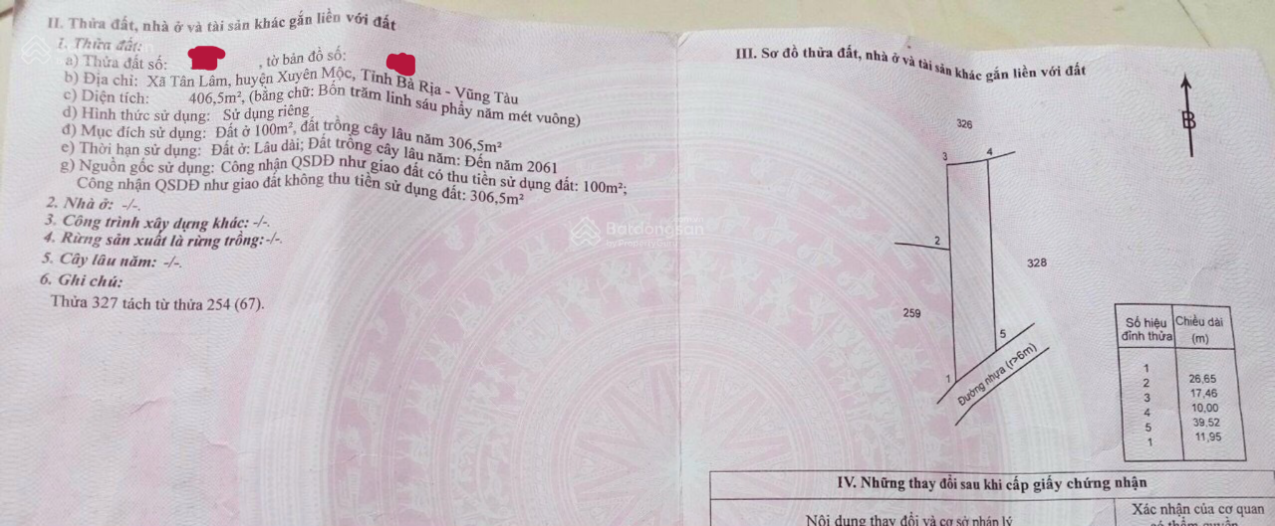 II. Thửa đất, nhà ở và tài sản khác gắn liền với đất
1. Thửa đất:
a) Thửa đất số: , tờ bản đồ số:
b) Địa chỉ: Xã Tân Lâm, huyện Xuyên Mộc, Tỉnh Bà Rịa - Vũng Tàu
c) Diện tích: 406,5m², (bằng chữ: Bốn trăm linh sáu phẩy năm mét vuông)
d) Hình thức sử dụng: Sử dụng riêng
đ) Mục đích sử dụng: Đất ở 100m², đất trồng cây lâu năm 306,5m²
e) Thời hạn sử dụng: Đất ở: Lâu dài; Đất trồng cây lâu năm: Đến năm 2061
g) Nguồn gốc sử dụng: Công nhận QSDĐ như giao đất có thu tiền sử dụng đất: 100m²;
Công nhận QSDĐ như giao đất không thu tiền sử dụng đất: 306,5m²
2. Nhà ở: -/-.
3. Công trình xây dựng khác: -/-.
4. Rừng sản xuất là rừng trồng: -/-.
5. Cây lâu năm: -/-.
6. Ghi chú:
Thửa 327 tách từ thửa 254 (67).
Batdongsan
by PropertyGuru
III. Sơ đồ thửa đất, nhà ở và tài sản khác gắn liền với đất
B
326
3 4
2
328
259
5
1
Đường nhựa (r>6m)
Số hiệu đỉnh thửa Chiều dài (m)
1
2 26,65
3 17,46
4 10,00
5 39,52
1 11,95
IV. Những thay đổi sau khi cấp giấy chứng nhận
Nội dung thay đổi và cơ sở pháp lý
Xác nhận của cơ quan
có thẩm quyền